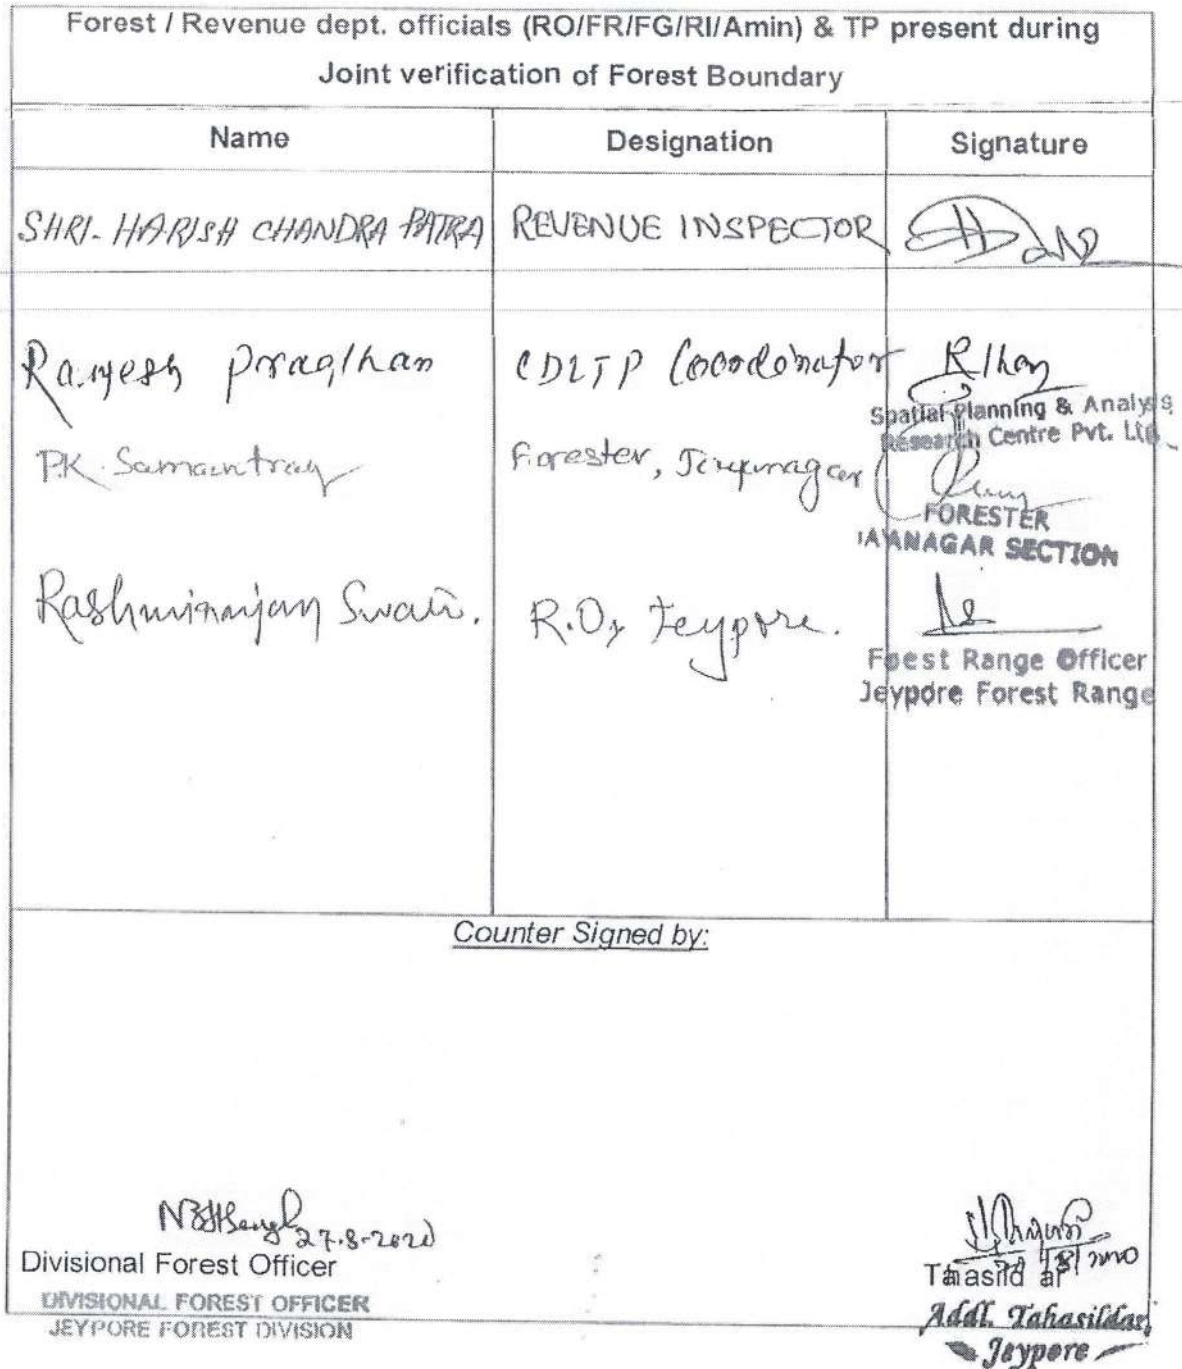 Forest / Revenue dept. officials (RO/FR/FG/RI/Amin) & TP present during
Joint verification of Forest Boundary
Name Designation Signature
SHRI- HARISH CHANDRA PATRA REVENUE INSPECTOR
Ramesh Pradhan Coordinator
Spatial Planning & Analysis
Research Centre Pvt. Ltd.
P.K. Samantray Forester,
FORESTER
JAYANAGAR SECTION
Rashmiranjan Swain. R.O, Jeypore.
Foest Range Officer
Jeypore Forest Range
Counter Signed by:
27.8-2020
Divisional Forest Officer
DIVISIONAL FOREST OFFICER
JEYPORE FOREST DIVISION
Tahasildar
Addl. Tahasildar,
Jeypore